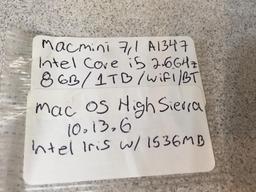 Macmini 7,1 A1347
Intel Core i5 2.6GHz
8GB/1TB/WiFi/BT
Mac OS High Sierra
10.13.6
Intel Iris W/ 1536MB